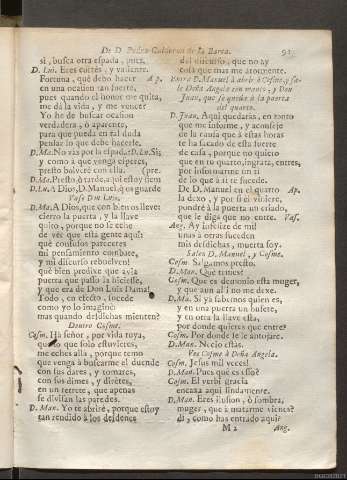 De D. Pedro Calderon de la Barca.
91
si, busca otra espada, pues,
D. Lui. Eres cortés, y valiente.
Fortuna, què debo hacer Ap.
en una ocasion tan fuerte,
pues quando el honor me quita,
me dà la vida, y me vence?
Yo he de buscar ocasion
verdadera, ò aparente,
para que pueda en tal duda
pensar lo que debo hacerle.
D. Ma. No vais por la espada? D. Lu. Si;
y como à que venga esperes,
presto bolverè con ella. (pre.
D. Ma. Presto ò tarde, aqui estoy siem
D. Lu. A Dios, D. Manuel, q̃ os guarde
Vase Don Luis.
D. Ma. A Dios, que con bien os lleve:
cierro la puerta, y la llave
quito, porque no se eche
de vèr que està gente aqui:
què confusos pareceres
mi pensamiento combate,
y mi discurso rebuelven!
què bien predixe que avia
puerta que passo la hiciesse,
y que era de Don Luis Dama!
Todo, en efecto, sucede
como yo lo imaginè:
mas quando desdichas mienten?
Dentro Cosme.
Cosm. Hà señor, por vida tuya,
que lo que solo estuvieres,
me eches allà, porque temo
que venga à buscarme el duende
con sus dares, y tomares,
con sus dimes, y diretes,
en un retrete, que apenas
se divisan las paredes.
D. Man. Yo te abrirè, porque estoy
tan rendido à los desdenes
del discurso, que no ay
cosa que mas me atormente.
Entra D. Manuel à abrir à Cosme, y sale
Doña Angela con manto, y Don
Juan, que se queda à la puerta
del quarto.
D. Juan. Aqui quedaràs, en tanto
que me informe, y aconseje
de la causa que à estas horas
te ha sacado de esta suerte
de casa, porque no quiero
que en tu quarto, ingrata, entres,
por informarme sin ti
de lo que à ti te sucede.
De D. Manuel en el quarto Ap.
la dexo, y por si èl viniere,
pondrè à la puerta un criado,
que le diga que no entre. Vas.
Ang. Ay infelice de mi!
unas à otras suceden
mis desdichas, muerta soy.
Salen D. Manuel, y Cosme.
Cosm. Salgamos presto.
D. Man. Què temes?
Cosm. Que es demonio esta muger,
y que aun alli no me dexe.
D. Ma. Si yà sabemos quien es,
y en una puerta un bufete,
y en otra la llave està,
por donde quieres que entre?
Cosm. Por donde se le antojare.
D. Man. Necio estàs.
Vee Cosme à Doña Angela.
Cosm. Jesus mil veces!
D. Man. Pues què es esso?
Cosm. El verbi gracia
encaxa aqui lindamente.
D. Man. Eres ilusion, ò sombra,
muger, que à matarme vienes?
di, como has entrado aqui?
M 2
Ang.